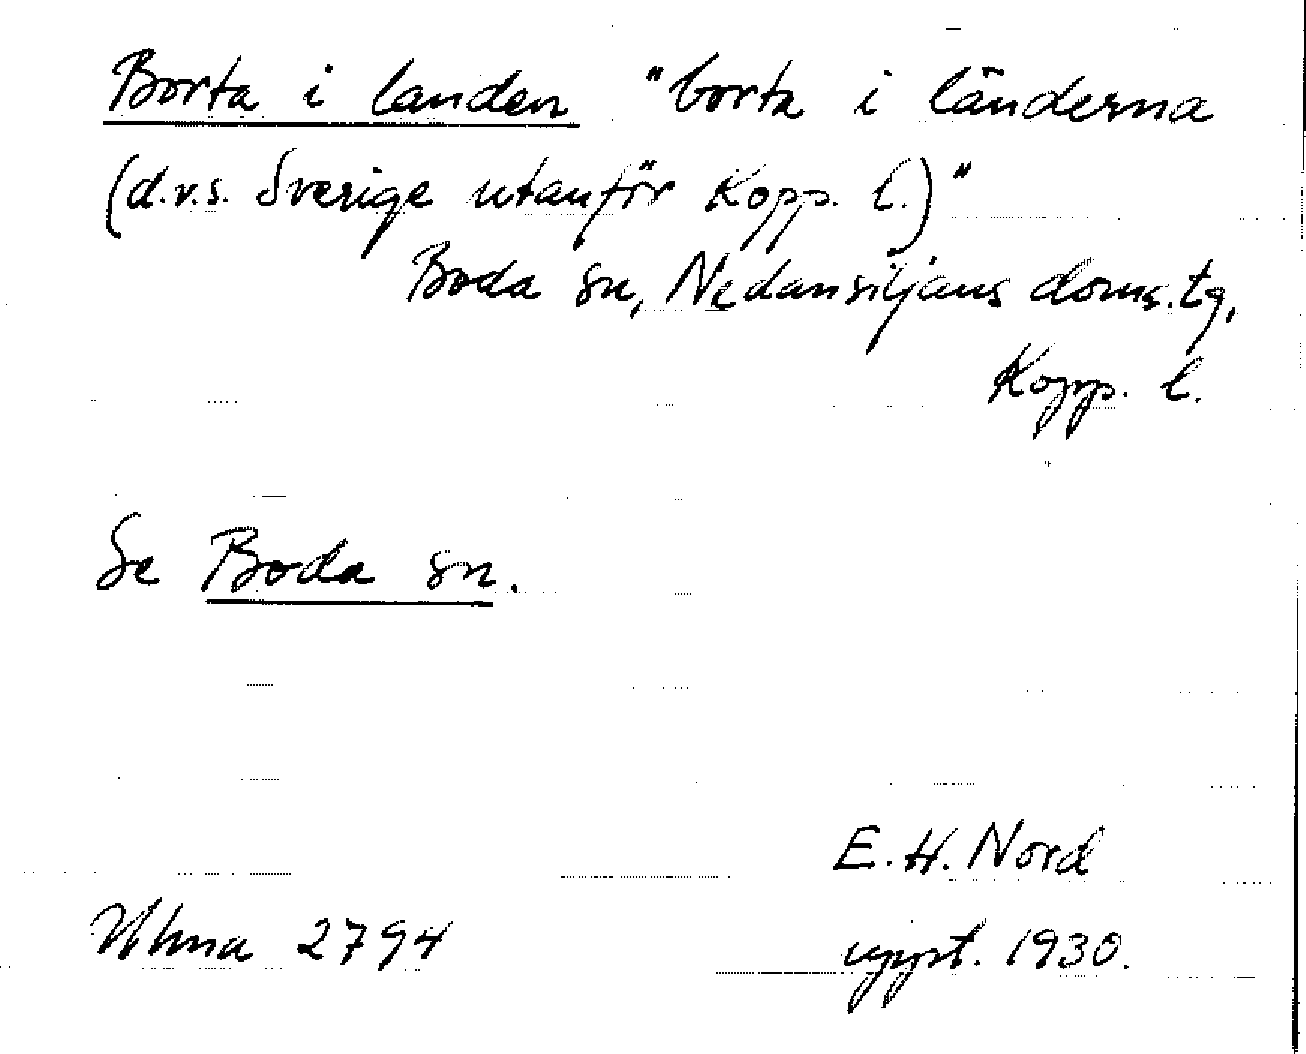 Borta i landen "borta i länderna
(d.v.s. Sverige utanför Kopp. l.)"
Boda sn, Nedansiljans doms.tg,
Kopp. l.
Se Boda sn.
E. H. Nord
Ulma 2794
uppt. 1930.